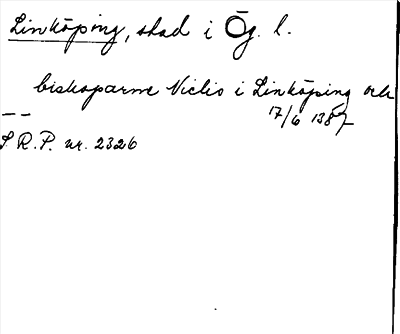 Linköping, stad i Ög. l.
biskoparne Niclis i Linköping och
— —
17/6 1387
S. R. P. nr. 2326